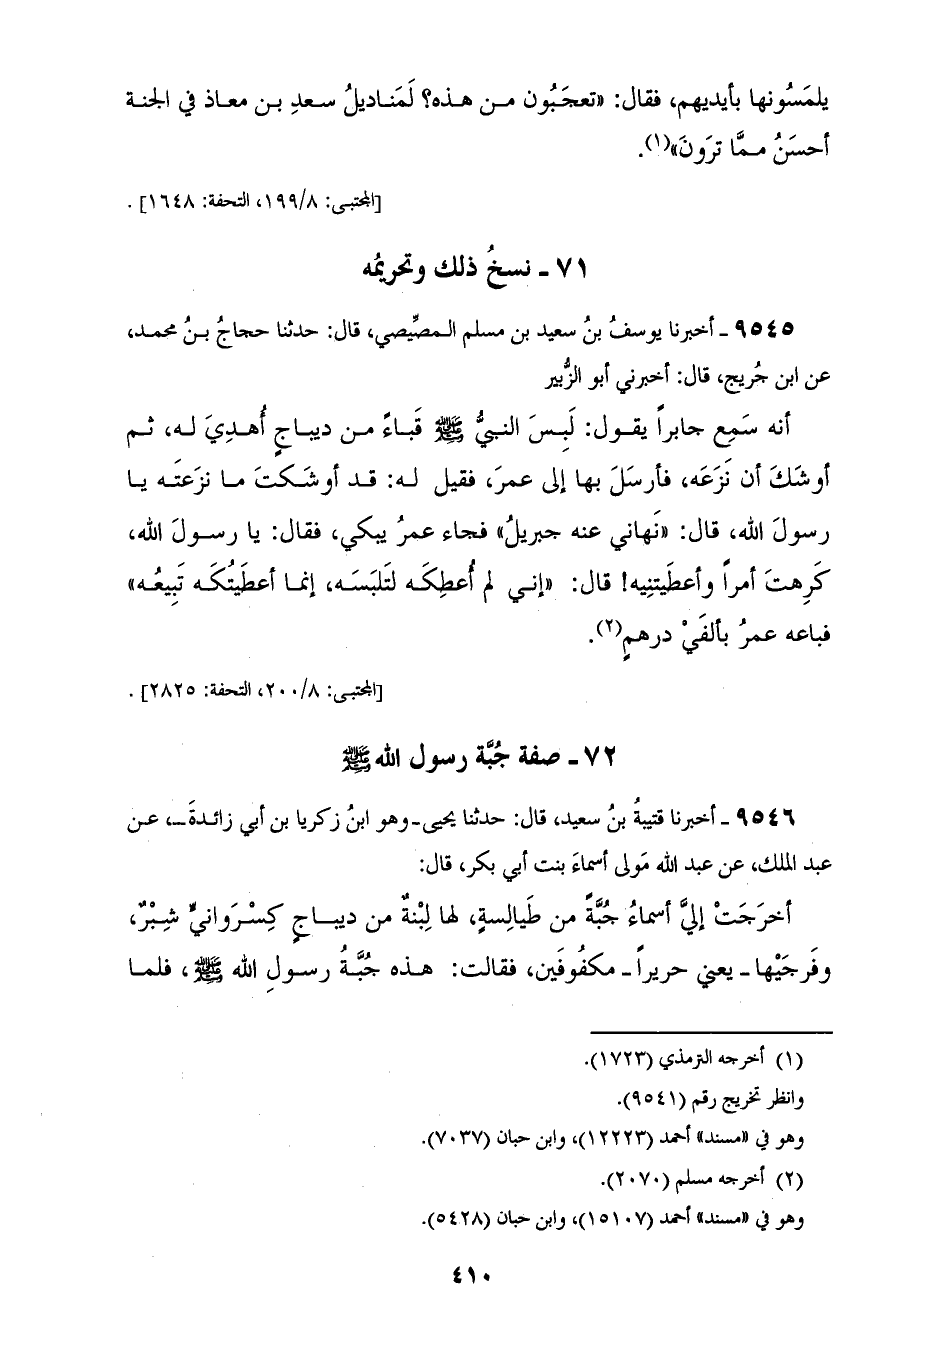 يلمَسُونها بأيديهم، فقال: «تعجَبُون من هذه؟ لَمَناديلُ سعدِ بن معاذ في الجنة
أحسَنُ ممَّا ترَونَ»(١).
[المجتبى: ١٩٩/٨، التحفة: ١٦٤٨].
٧١ ـ نسخُ ذلك وتحريمُه
٩٥٤٥ ـ أخبرنا يوسفُ بنُ سعيد بن مسلم المصِّيصي، قال: حدثنا حجاجُ بنُ محمد،
عن ابن جُريج، قال: أخبرني أبو الزُّبير
أنه سَمِع جابراً يقول: لَبِسَ النبيُّ ﷺ قَباءً من ديباجٍ أُهدِيَ له، ثم
أوشَكَ أن نزَعَه، فأرسَلَ بها إلى عمرَ، فقيل له: قد أوشكتَ ما نزعتَه يا
رسولَ الله، قال: «نَهاني عنه جبريلُ» فجاء عمرُ يبكي، فقال: يا رسولَ الله،
كَرِهتَ أمراً وأعطَيتنِيه! قال: «إني لم أُعطِكَه لتَلبَسَه، إنما أعطَيتُكَه تَبِيعُه»
فباعه عمرُ بألفَيْ درهمٍ(٢).
[المجتبى: ٢٠٠/٨، التحفة: ٢٨٢٥].
٧٢ ـ صفة جُبَّة رسول الله ﷺ
٩٥٤٦ ـ أخبرنا قتيبةُ بنُ سعيد، قال: حدثنا يحيى ـ وهو ابنُ زكريا بن أبي زائدةَ ـ، عن
عبد الملك، عن عبد الله مَولى أسماءَ بنت أبي بكر، قال:
أخرَجَتْ إليَّ أسماءُ جُبَّةً من طَيالِسةٍ، لها لِبْنةٌ من ديباجٍ كِسْرَوانيٍّ شِبْرٌ،
وفَرجَيْها ـ يعني حريراً ـ مكفُوفَين، فقالت: هذه جُبَّةُ رسولِ الله ﷺ، فلما
(١) أخرجه الترمذي (١٧٢٣).
وانظر تخريج رقم (٩٥٤١).
وهو في «مسند» أحمد (١٢٢٢٣)، وابن حبان (٧٠٣٧).
(٢) أخرجه مسلم (٢٠٧٠).
وهو في «مسند» أحمد (١٥١٠٧)، وابن حبان (٥٤٢٨).
٤١٠